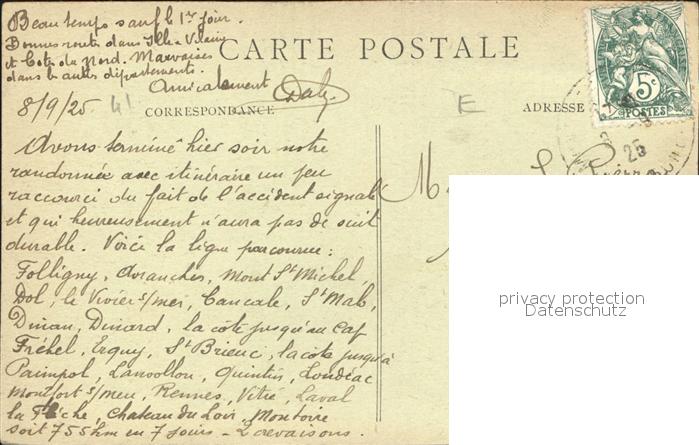 Beau temps sauf le 1er jour.
Bonnes routes dans Ille & Vilaine
et Cotes du Nord. Mauvaises
dans les autres départements.
Amicalement Daly
CARTE POSTALE
8/9/25 41
CORRESPONDANCE
E
ADRESSE
5c
POSTES
25
Avons terminé hier soir notre
randonnée avec itinéraire un peu
raccourci du fait de l'accident signalé
et qui heureusement n'aura pas de suite
durable. Voici la ligne parcourue :
Folligny, Avranches, Mont St Michel,
Dol, le Vivier s/mer, Cancale, St Malo,
Dinan, Dinard, la côte jusqu'au Cap
Fréhel, Erquy, St Brieuc, la côte jusqu'à
Paimpol, Lanvollon, Quintin, Loudéac
Montfort s/meu, Rennes, Vitré, Laval
la Flèche, Chateau du Loir, Montoire
soit 755 km en 7 jours - 2 crevaisons.
M
privacy protection
Datenschutz